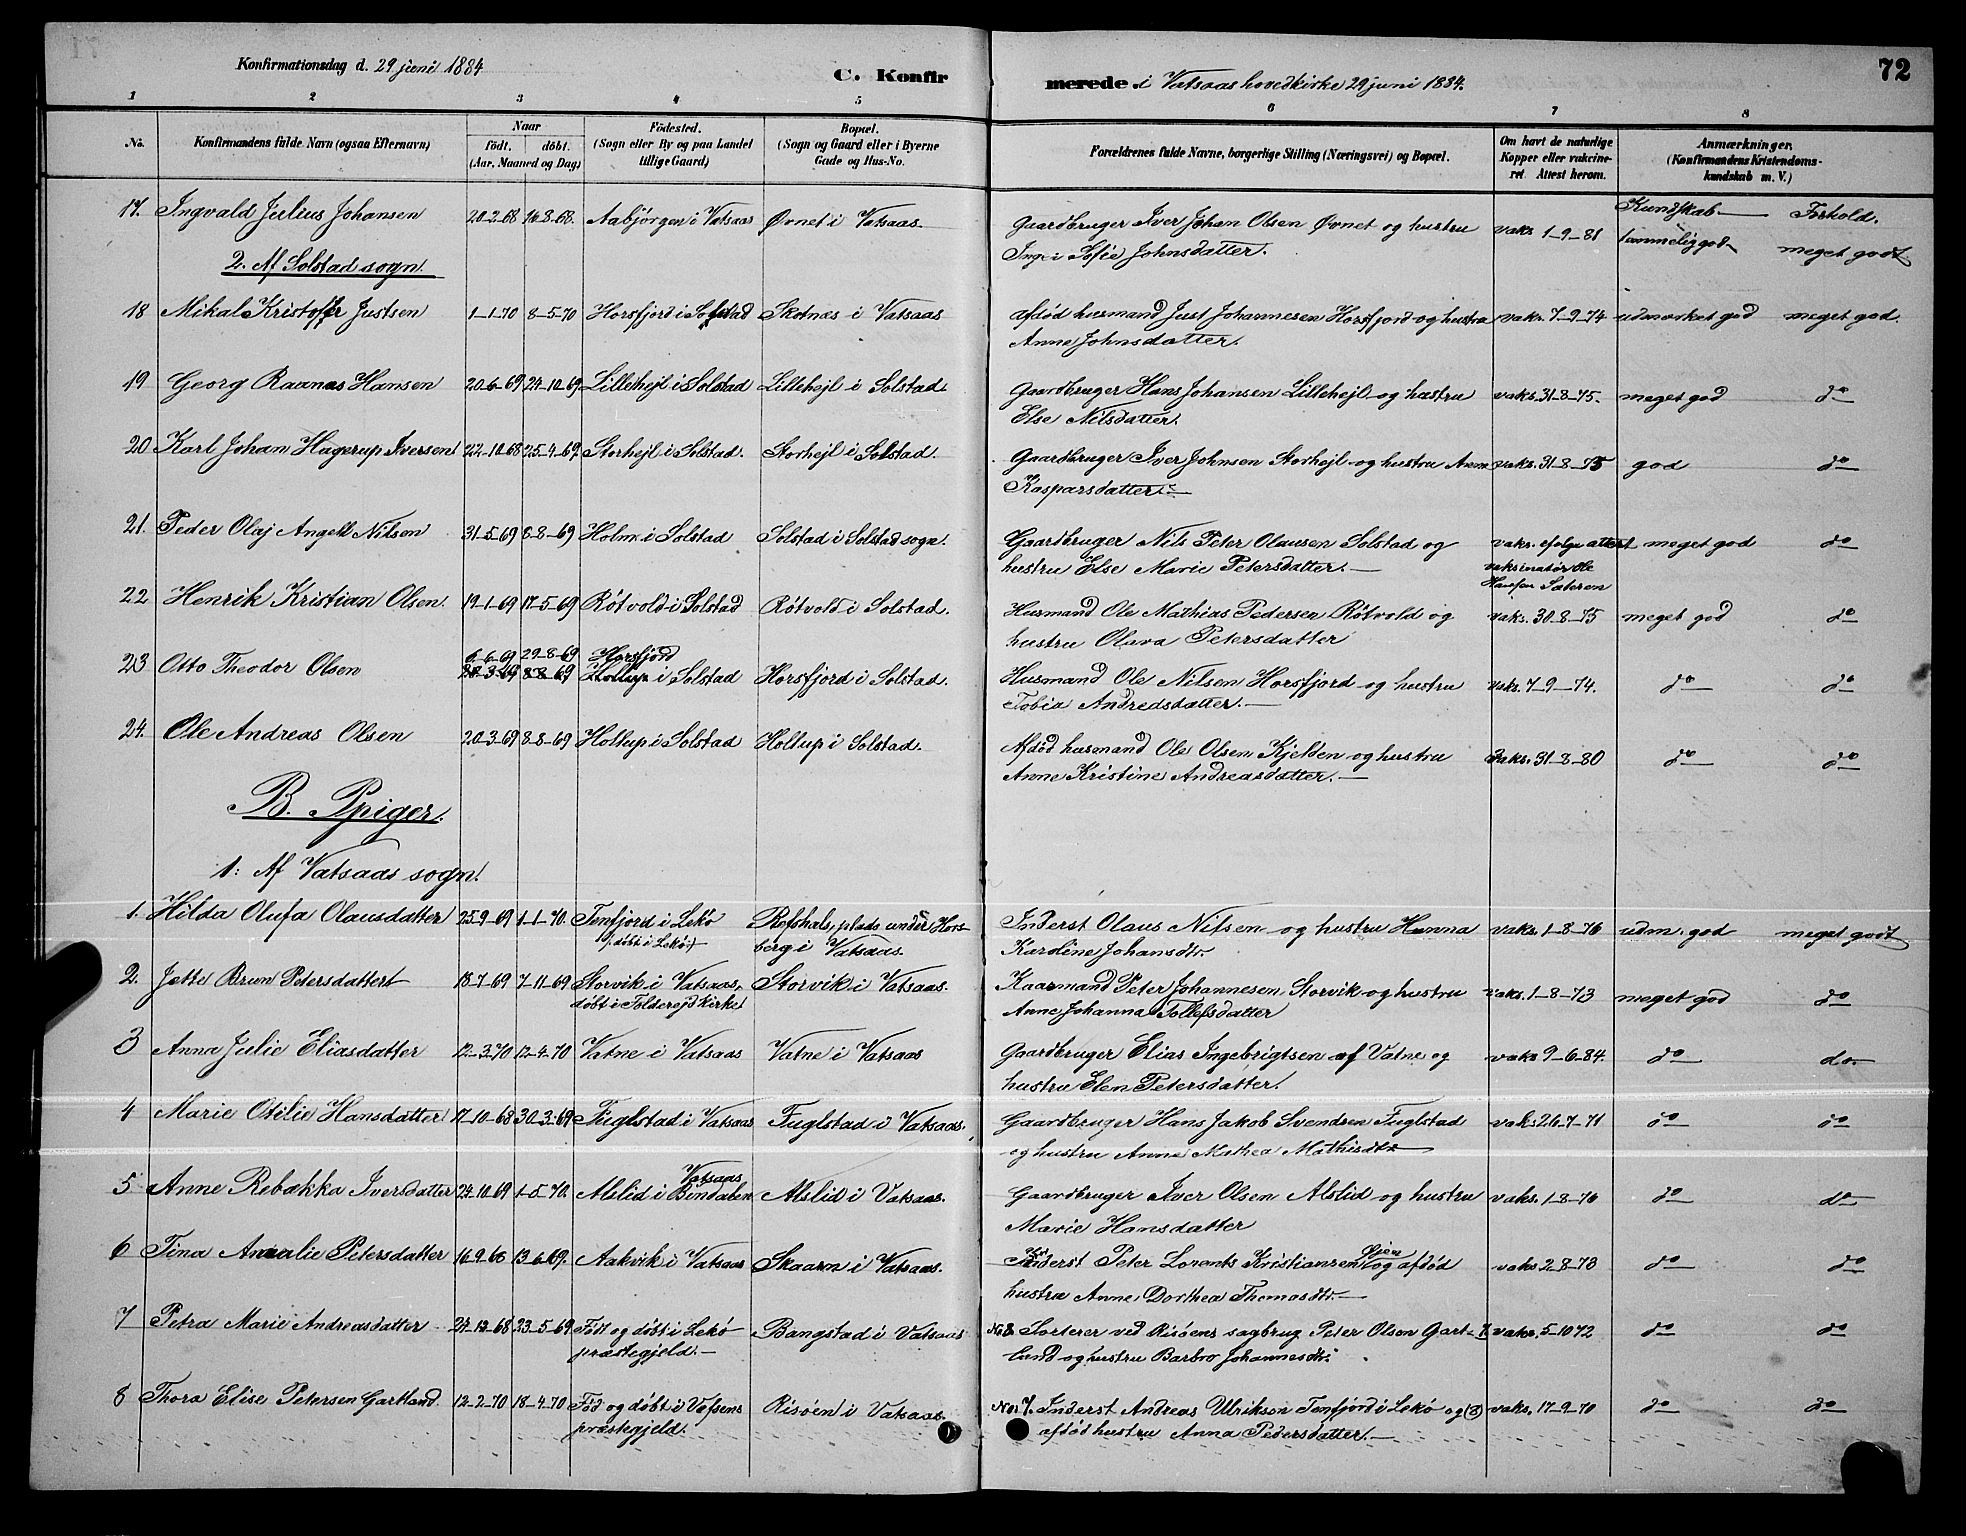 Konfirmationsdag d. 29 juni 1884
C. Konfirmerede i Vatsaas hovedkirke 29 juni 1884.
72
1 2 3 4 5 6 7 8
No. Konfirmandens fulde Navn (ogsaa Efternavn)
Naar
født. døbt.
(Aar, Maaned og Dag)
Fødested.
(Sogn eller By og paa Landet
tillige Gaard)
Bopæl.
(Sogn og Gaard eller i Byerne
Gade og Hus-No.
Forældrenes fulde Navne, borgerlige Stilling (Næringsvei) og Bopæl.
Om havt de naturlige
Kopper eller vakcine-
ret. Attest herom.
Anmærkninger.
(Konfirmandens Kristendoms-
kundskab m. V.)
Kundskab Forhold.
17. Ingvald Julius Johansen 20-2-68 16-8-68. Aabjørgen i Vatsaas Øvnet i Vatsaas. Gaardbruger Iver Johan Olsen Øvnet og hustru vaks 1-9-81 temmelig god meget godt
Inger Sofie Johnsdatter.
2. Af Solstad sogn.
18 Mikal Kristoffer Justsen 1-1-70 8-5-70 Horsfjord i Solstad Skotnæs i Vatsaas afdød husmand Just Johannesen Horsfjord og hustru vaks. 7-9-74 udmærket god meget god.
Anne Johnsdatter.
19 Georg Raanæs Hansen 20-6-69 24-10-69 Lillehejl i Solstad Lillehejl i Solstad Gaardbruger Hans Johansen Lillehejl og hustru vaks. 31-8-75. meget god do
Else Nilsdatter.
20 Karl Johan Hagerup Iversen 22-10-68 25-4-69 Storhejl i Solstad. Storhejl i Solstad. Gaardbruger Iver Johnsen Storhejl og hustru Anna vaks. 31-8-75 god do
Kaspersdatter.
21. Peder Olaj Angell Nilsen 31-5-69 8-8-69 Holm i Solstad Solstad i Solstad sogn. Gaardbruger Nils Peter Olausen Solstad og vaks. efølge attest meget god do
hustru Else Marie Petersdatter. vaksinatør Ole
Sateren
22 Henrik Kristian Olsen. 19-1-69 17-5-69 Røtvold i Solstad Røtvold i Solstad. Husmand Ole Mathias Pedersen Røtvold og vaks. 30-8-75 meget god do
hustru Olava Petersdatter
6-6-69 29-8-69 Horsfjord
23 Otto Theodor Olsen 20-3-69 8-8-69 Hollup i Solstad Horsfjord i Solstad. Husmand Ole Nilsen Horsfjord og hustru vaks. 7-9-74. do do
Tobia Andredsdatter.
24. Ole Andreas Olsen 20-3-69 8-8-69 Hollup i Solstad Hollup i Solstad. Afdød husmand Ole Olsen Kjelden og hustru vaks. 31-8-80 do do
Anne Kristine Andreasdatter.
B. Ppiger.
1. Af Vatsaas sogn.
1. Hilda Olufa Olausdatter 25-9-69 1-1-70. Tenfjord i Lekø Refshals, plads under Hors- Inderst Olaus Nilsen og hustru Hanna vaks. 1-8-76 udm. god meget godt
(døbt i Lekø) berg i Vatsaas. Karoline Johansdtr.
2. Jette Brun Petersdatter 18-7-69 7-11-69 Storvik i Vatsaas, Storvik i Vatsaas. Kaarmand Peter Johannesen Storvik og hustru vaks. 1-8-73 meget god do
døbt i Foldereid kirke Anne Johanna Tollefsdatter
3 Anna Julie Eliasdatter 12-3-70 12-4-70 Vatne i Vatsaas Vatne i Vatsaas Gaardbruger Elias Ingebrigtsen af Vatne og vaks 9-6-84. do do.
hustru Elen Petersdatter.
4 Marie Otilie Hansdatter 17-10-68 30-3-69 Fuglstad i Vatsaas Fuglstad i Vatsaas. Gaardbruger Hans Jakob Svendsen Fuglstad vaks 26-7-71 do do
og hustru Anne Mathea Mathisdtr
Vatsaas
5 Anne Rebækka Iversdatter 24-10-69 1-5-70. Alslid i Bindalen Alslid i Vatsaas. Gaardbruger Iver Olsen Alslid og hustru vaks. 1-8-76 do do
Marie Hansdatter
6 Tina Amalie Petersdatter 16-9-68 13-6-69. Aakvik i Vatsaas Skaarn i Vatsaas. Inderst Peter Lorents Kristiansen og afdød vaks 2-8-73 do do
hustru Anne Dorthea Thomasdtr.
7 Petra Marie Andreasdatter 24-12-68 23-5-69 Født og døbt i Lekø Bangstad i Vatsaas No 8. Sorterer ved Risøens sagbrug Peter Olsen Gart- 7. vaks. 5-10 72 do do
præstegjeld. land og hustru Barbro Johannesdtr.
8 Thora Elise Petersen Gartland 12-2-70 18-4-70 Fød og døbt i Vefsens Risøen i Vatsaas. No. 7. Inderst Andreas Ulriksen Tenfjord i Lekø og (8) vaks. 17-9-70 do do
præstegjeld. afdød hustru Anna Pedersdatter.